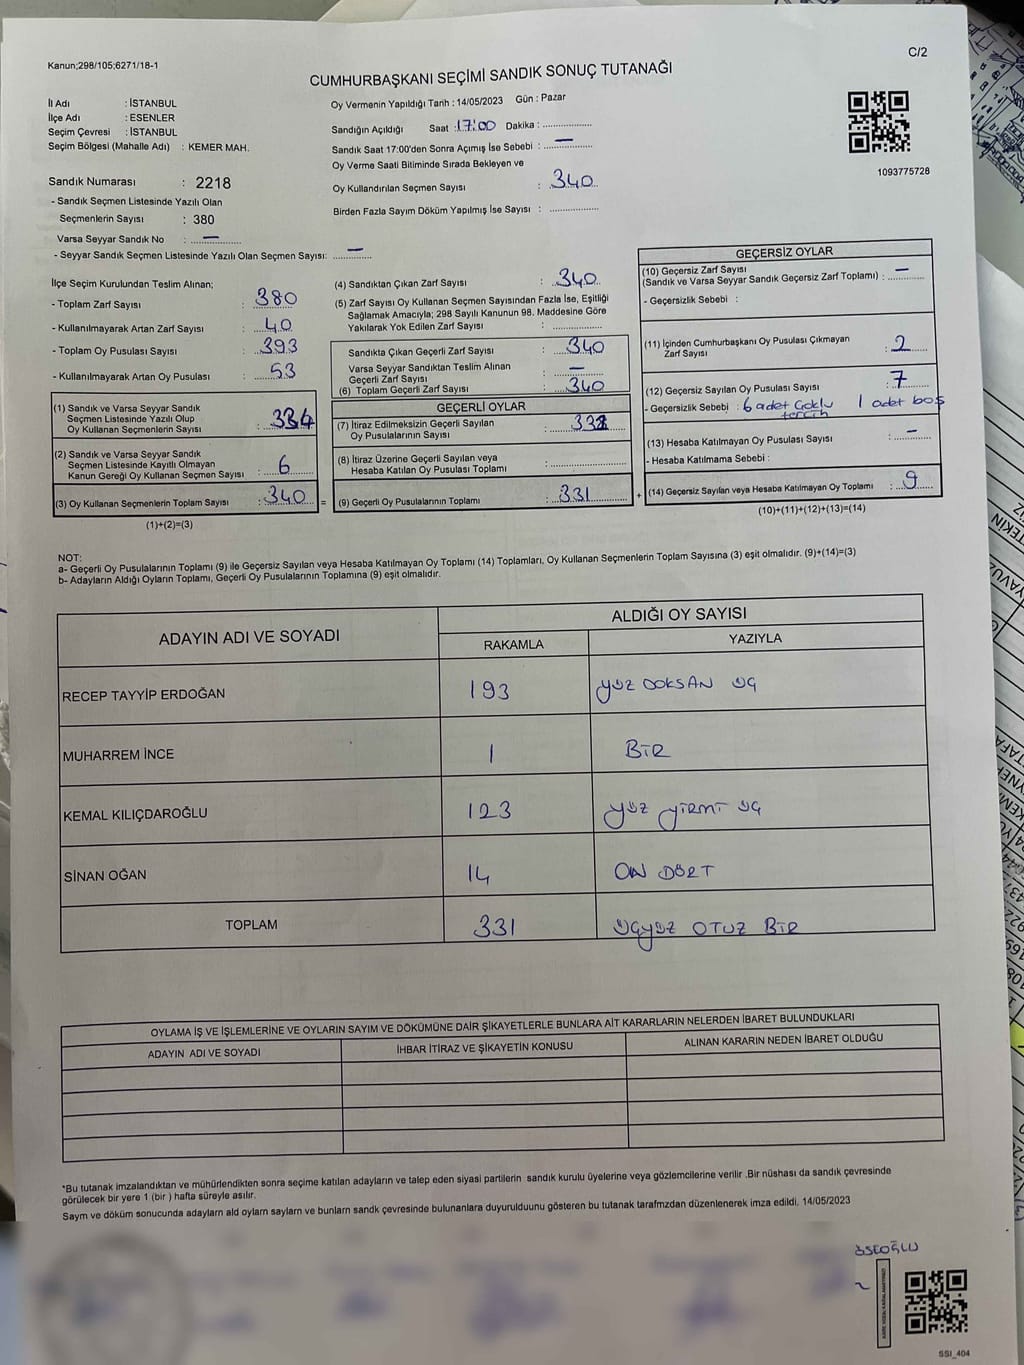 Kanun;298/105;6271/18-1
C/2
CUMHURBAŞKANI SEÇİMİ SANDIK SONUÇ TUTANAĞI
İl Adı : İSTANBUL
İlçe Adı : ESENLER
Seçim Çevresi : İSTANBUL
Seçim Bölgesi (Mahalle Adı) : KEMER MAH.
Sandık Numarası : 2218
- Sandık Seçmen Listesinde Yazılı Olan
Seçmenlerin Sayısı : 380
Varsa Seyyar Sandık No : —
- Seyyar Sandık Seçmen Listesinde Yazılı Olan Seçmen Sayısı: —
Oy Vermenin Yapıldığı Tarih : 14/05/2023 Gün : Pazar
Sandığın Açıldığı Saat : 17:00 Dakika : ..............
Sandık Saat 17:00'den Sonra Açımış İse Sebebi : —
Oy Verme Saati Bitiminde Sırada Bekleyen ve
Oy Kullandırılan Seçmen Sayısı : 340
Birden Fazla Sayım Döküm Yapılmış İse Sayısı : ..............
1093775728
İlçe Seçim Kurulundan Teslim Alınan;
- Toplam Zarf Sayısı : 380
- Kullanılmayarak Artan Zarf Sayısı : 40
- Toplam Oy Pusulası Sayısı : 393
- Kullanılmayarak Artan Oy Pusulası : 53
(1) Sandık ve Varsa Seyyar Sandık
Seçmen Listesinde Yazılı Olup
Oy Kullanan Seçmenlerin Sayısı : 334
(2) Sandık ve Varsa Seyyar Sandık
Seçmen Listesinde Kayıtlı Olmayan
Kanun Gereği Oy Kullanan Seçmen Sayısı : 6
(3) Oy Kullanan Seçmenlerin Toplam Sayısı : 340 =
(1)+(2)=(3)
(4) Sandıktan Çıkan Zarf Sayısı : 340
(5) Zarf Sayısı Oy Kullanan Seçmen Sayısından Fazla İse, Eşitliği
Sağlamak Amacıyla; 298 Sayılı Kanunun 98. Maddesine Göre
Yakılarak Yok Edilen Zarf Sayısı : ..............
Sandıkta Çıkan Geçerli Zarf Sayısı : 340
Varsa Seyyar Sandıktan Teslim Alınan
Geçerli Zarf Sayısı : —
(6) Toplam Geçerli Zarf Sayısı : 340
GEÇERLİ OYLAR
(7) İtiraz Edilmeksizin Geçerli Sayılan
Oy Pusulalarının Sayısı :
(8) İtiraz Üzerine Geçerli Sayılan veya
Hesaba Katılan Oy Pusulası Toplamı : ..............
(9) Geçerli Oy Pusulalarının Toplamı : 331 +
GEÇERSİZ OYLAR
(10) Geçersiz Zarf Sayısı
(Sandık ve Varsa Seyyar Sandık Geçersiz Zarf Toplamı) : —
- Geçersizlik Sebebi :
(11) İçinden Cumhurbaşkanı Oy Pusulası Çıkmayan
Zarf Sayısı : 2
(12) Geçersiz Sayılan Oy Pusulası Sayısı : 7
- Geçersizlik Sebebi : 6 adet Çoklu tercih 1 adet boş
(13) Hesaba Katılmayan Oy Pusulası Sayısı : —
- Hesaba Katılmama Sebebi :
(14) Geçersiz Sayılan veya Hesaba Katılmayan Oy Toplamı : 9
(10)+(11)+(12)+(13)=(14)
NOT:
a- Geçerli Oy Pusulalarının Toplamı (9) ile Geçersiz Sayılan veya Hesaba Katılmayan Oy Toplamı (14) Toplamları, Oy Kullanan Seçmenlerin Toplam Sayısına (3) eşit olmalıdır. (9)+(14)=(3)
b- Adayların Aldığı Oyların Toplamı, Geçerli Oy Pusulalarının Toplamına (9) eşit olmalıdır.
ADAYIN ADI VE SOYADI
ALDIĞI OY SAYISI
RAKAMLA YAZIYLA
RECEP TAYYİP ERDOĞAN 193 YÜZ DOKSAN ÜÇ
MUHARREM İNCE 1 BİR
KEMAL KILIÇDAROĞLU 123 yüz yirmi üç
SİNAN OĞAN 14 ON DÖRT
TOPLAM 331 ÜÇYÜZ OTUZ BİR
OYLAMA İŞ VE İŞLEMLERİNE VE OYLARIN SAYIM VE DÖKÜMÜNE DAİR ŞİKAYETLERLE BUNLARA AİT KARARLARIN NELERDEN İBARET BULUNDUKLARI
ADAYIN ADI VE SOYADI İHBAR İTİRAZ VE ŞİKAYETİN KONUSU ALINAN KARARIN NEDEN İBARET OLDUĞU
*Bu tutanak imzalandıktan ve mühürlendikten sonra seçime katılan adayların ve talep eden siyasi partilerin sandık kurulu üyelerine veya gözlemcilerine verilir .Bir nüshası da sandık çevresinde
görülecek bir yere 1 (bir ) hafta süreyle asılır.
Sayım ve döküm sonucunda adayların ald oyların sayların ve bunların sandk çevresinde bulunanlara duyurulduunu gösteren bu tutanak tarafmzdan düzenlenerek imza edildi. 14/05/2023
SSI_404
TEKIN
YAVUZ